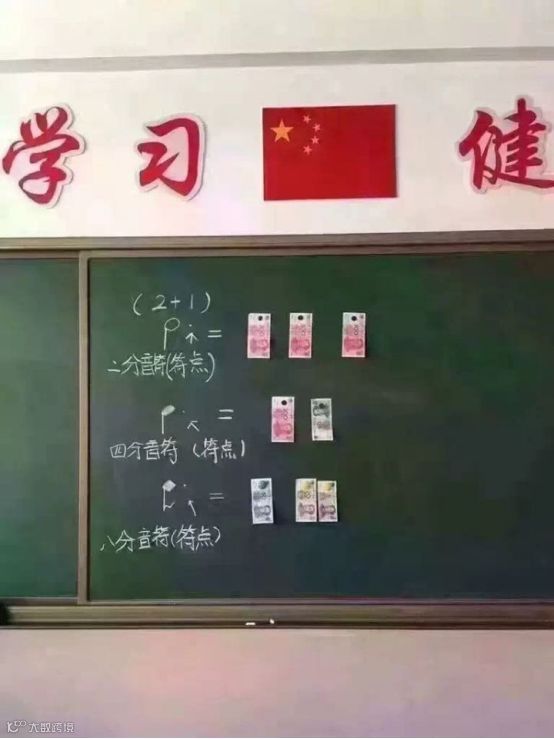 学习 健
(2+1)
=
二分音符(符点)
=
四分音符(符点)
=
八分音符(符点)
大数跨境